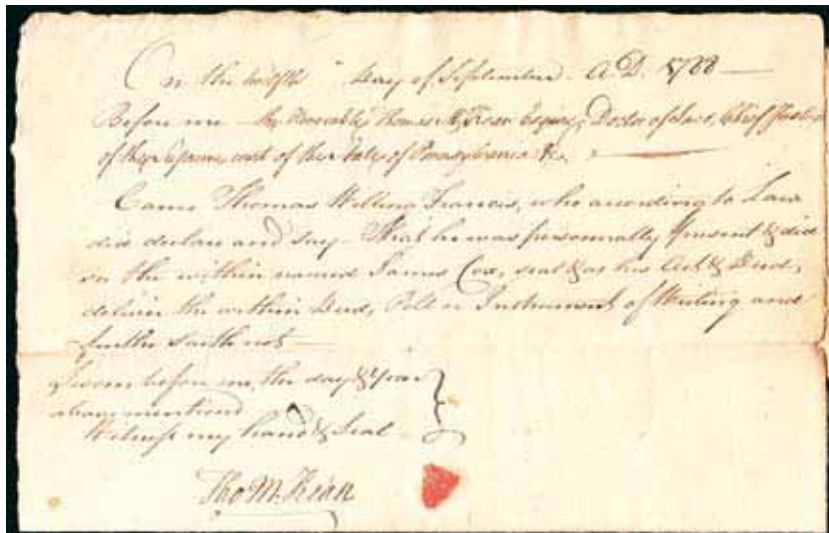 On the twelfth Day of September A.D. 1788 —
Before me the Honorable Thomas M.Kean Esquire, Doctor of Laws, Chief Justice
of the Supreme court of the State of Pennsylvania &c.
Came Thomas Willing Francis, who according to Law
did declare and say — That he was personnally present & did
see the within named James Cox, seal & as his Act & Deed,
deliver the within Deed, Poll or Instrument of Writing and
further saith not —
Sworn before me, the day & Year
above mentioned
Witness my hand & Seal
Tho M.Kean